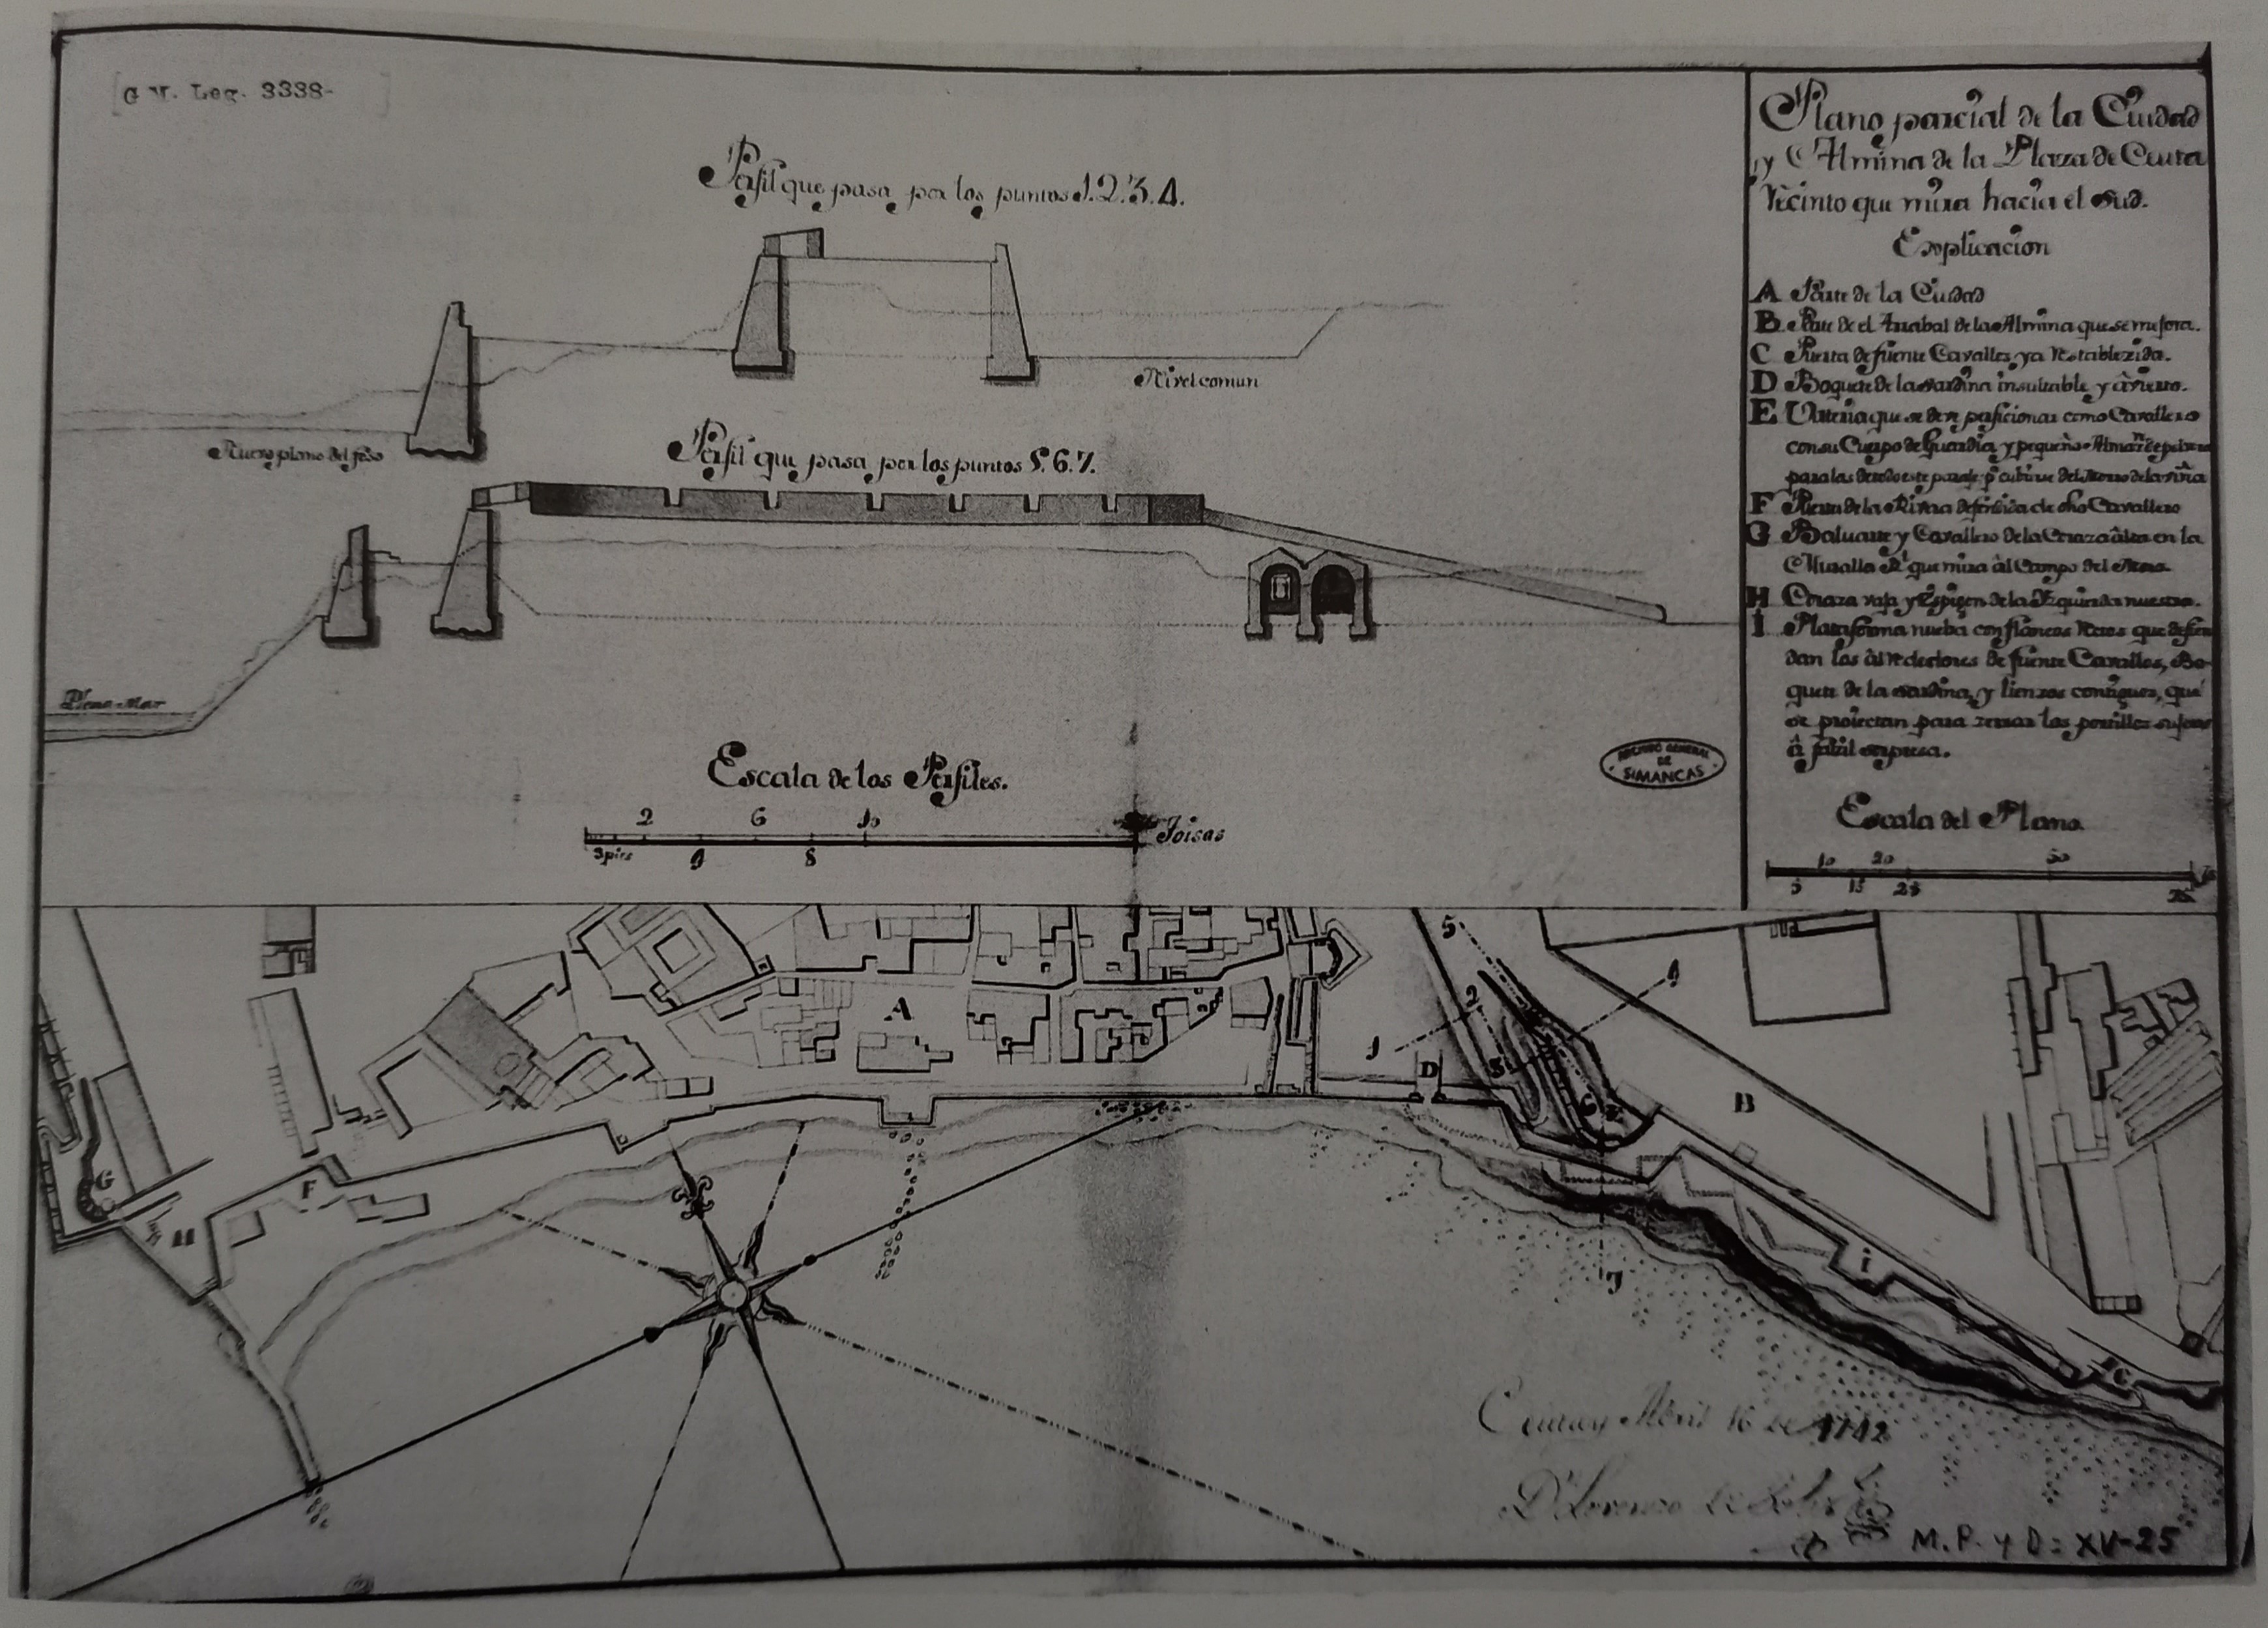 G M. Leg. 3338-
Perfil que pasa por los puntos 1.2.3.4.
Nivel comun
Nuevo plano del foso
Perfil que pasa por los puntos 5.6.7.
Plena-Mar
Escala de los Perfiles.
2 6 10
3 pies 4 8
Toisas
ARCHIVO GENERAL
DE
SIMANCAS
Plano parcial de la Ciudad
y Almina de la Plaza de Ceuta
Recinto que mira hacia el Sud.
Explicacion
A Parte de la Ciudad
B Parte de el Arrabal de la Almina que se mejora.
C Puerta de fuente Cavallos ya restablezida.
D Boquete de la Sardina insultable y
E que se deve perficionar como Cavallero
con su Cuerpo de Guardia y pequeño
para las de todo este paraje
F Puerta de la Rivera defendida de dho Cavallero
G Baluarte y Cavallero de la Coraza alta en la
Muralla Rl que mira àl Campo del Moro
H Coraza vaja y Espigon de la Izquierda nuestra.
I Plataforma nueba con flancos que defien
dan los àlrededores de fuente Cavallos, Bo-
quete de la Sardina, y lienzos contiguos, que
se proiectan para zerrar los portillos sujetos
â fazil sorpresa.
Escala del Plano
10 20 50
5 15 25 75
5
4
2
A
1
D
3
6 E
B
G
F
H
i
7
C
Ceuta y Abril 16 de 1742
Dn Lorenzo de
M.P. y D: XV-25